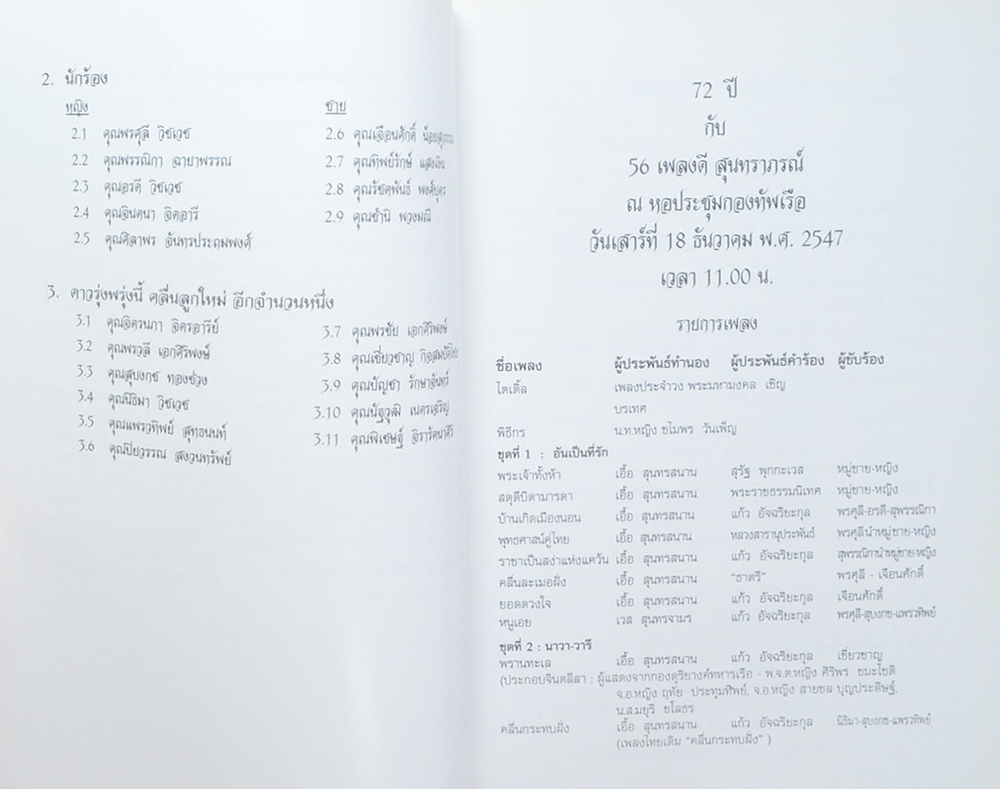 2. นักร้อง
หญิง
2.1 คุณพรศุลี วิชเวช
2.2 คุณพรรณิกา ฉายาพรรณ
2.3 คุณอรดี วิชเวช
2.4 คุณจินตนา จิตอารี
2.5 คุณศิลาพร จันทรประถมพงศ์
ชาย
2.6 คุณเจือนศักดิ์ น้อยสุวรรณ
2.7 คุณทิพย์รักษ์
2.8 คุณรัชตพันธ์ พงศ์บุตร
2.9 คุณชำนิ พวงมณี
3. ดาวรุ่งพรุ่งนี้ คลื่นลูกใหม่ อีกจำนวนหนึ่ง
3.1 คุณจิตรนภา จิตรอารีย์
3.2 คุณพรวลี เอกศิริพงษ์
3.3 คุณสุบงกช ทองช่วง
3.4 คุณนิธิมา วิชเวช
3.5 คุณแพรวทิพย์ สุทธนนท์
3.6 คุณปิยวรรณ สงวนทรัพย์
3.7 คุณพรชัย เอกศิริพงษ์
3.8 คุณเชี่ยวชาญ
3.9 คุณปัญชา รักษาจันทร์
3.10 คุณนัฐวุฒิ เนตรเจริญ
3.11 คุณพิเชษฐ์ จิรารัตนาศิริ
72 ปี
กับ
56 เพลงดี สุนทราภรณ์
ณ หอประชุมกองทัพเรือ
วันเสาร์ที่ 18 ธันวาคม พ.ศ. 2547
เวลา 11.00 น.
รายการเพลง
ชื่อเพลง ผู้ประพันธ์ทำนอง ผู้ประพันธ์คำร้อง ผู้ขับร้อง
ไตเติ้ล เพลงประจำวง พระมหามงคล เชิญ
บรเทศ
พิธีกร น.ท.หญิง ชไมพร วันเพ็ญ
ชุดที่ 1 : อันเป็นที่รัก
พระเจ้าทั้งห้า เอื้อ สุนทรสนาน สุรัฐ พุกกะเวส หมู่ชาย-หญิง
สดุดีบิดามารดา เอื้อ สุนทรสนาน พระราชธรรมนิเทศ หมู่ชาย-หญิง
บ้านเกิดเมืองนอน เอื้อ สุนทรสนาน แก้ว อัจฉริยะกุล พรศุลี-อรดี-สุพรรณิกา
พุทธศาสน์คู่ไทย เอื้อ สุนทรสนาน หลวงสารานุประพันธ์ พรศุลีนำหมู่ชาย-หญิง
ราชาเป็นสง่าแห่งแคว้น เอื้อ สุนทรสนาน แก้ว อัจฉริยะกุล สุพรรณิกานำหมู่ชาย-หญิง
คลื่นละเมอฝั่ง เอื้อ สุนทรสนาน "ธาตรี" พรศุลี - เจือนศักดิ์
ยอดดวงใจ เอื้อ สุนทรสนาน แก้ว อัจฉริยะกุล เจือนศักดิ์
หนูเอย เวส สุนทรจามร แก้ว อัจฉริยะกุล พรศุลี-สุบงกช-แพรวทิพย์
ชุดที่ 2 : นาวา-วารี
พรานทะเล เอื้อ สุนทรสนาน แก้ว อัจฉริยะกุล เชี่ยวชาญ
(ประกอบจินตลีลา : ผู้แสดงจากกองดุริยางค์ทหารเรือ - พ.จ.ต.หญิง ศิริพร ชมะโชติ
จ.อ.หญิง ฤทัย ประทุมทิพย์, จ.อ.หญิง สายชล บุญประดิษฐ์,
น.ส.มยุรี ชโลธร
คลื่นกระทบฝั่ง เอื้อ สุนทรสนาน แก้ว อัจฉริยะกุล นิธิมา-สุบงกช-แพรวทิพย์
(เพลงไทยเดิม "คลื่นกระทบฝั่ง" )